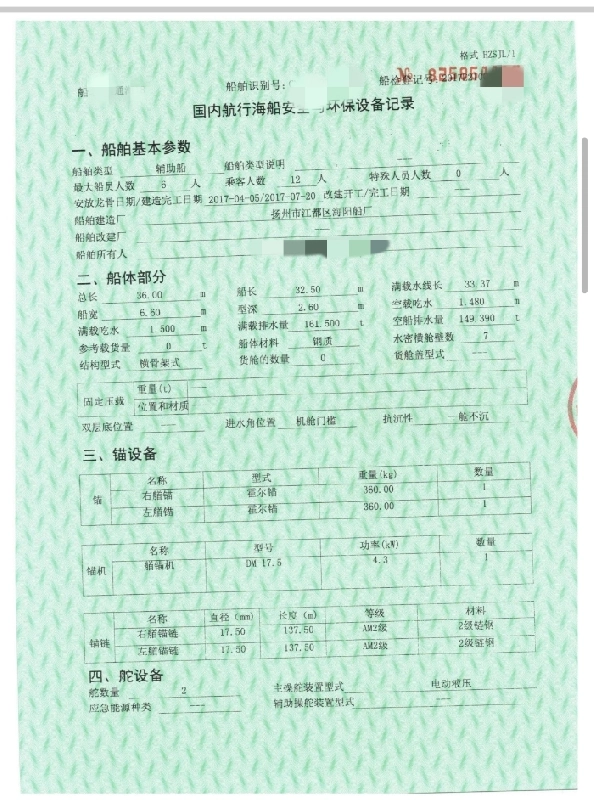 格式 HZSJL/1
船舶识别号:
船检登记号
国内航行海船安全与环保设备记录
一、船舶基本参数
船舶类型 辅助船 船舶类型说明 ---
最大船员人数 6 人 乘客人数 12 人 特殊人员人数 0 人
安放龙骨日期/建造完工日期 2017-04-05/2017-07-20 改建开工/完工日期 ---
船舶建造厂 扬州市江都区海阳船厂
船舶改建厂 ---
船舶所有人
二、船体部分
总长 36.00 m 船长 32.50 m 满载水线长 33.37 m
船宽 6.80 m 型深 2.60 m 空载吃水 1.480 m
满载吃水 1.500 m 满载排水量 161.500 t 空船排水量 149.390 t
参考载货量 0 t 船体材料 钢质 水密横舱壁数 7
结构型式 横骨架式 货舱的数量 0 货舱盖型式 ---
固定压载 重量(t) ---
位置和材质
双层底位置 --- 进水角位置 机舱门槛 抗沉性 舱不沉
三、锚设备
名称 型式 重量(kg) 数量
锚 右艏锚 霍尔锚 360.00 1
左艏锚 霍尔锚 360.00 1
名称 型号 功率(kW) 数量
锚机 艏锚机 DM 17.5 4.3 1
名称 直径 (mm) 长度 (m) 等级 材料
锚链 右艏锚链 17.50 137.50 AM2级 2级链钢
左艏锚链 17.50 137.50 AM2级 2级链钢
四、舵设备
舵数量 2 主操舵装置型式 电动液压
应急能源种类 --- 辅助操舵装置型式 ---